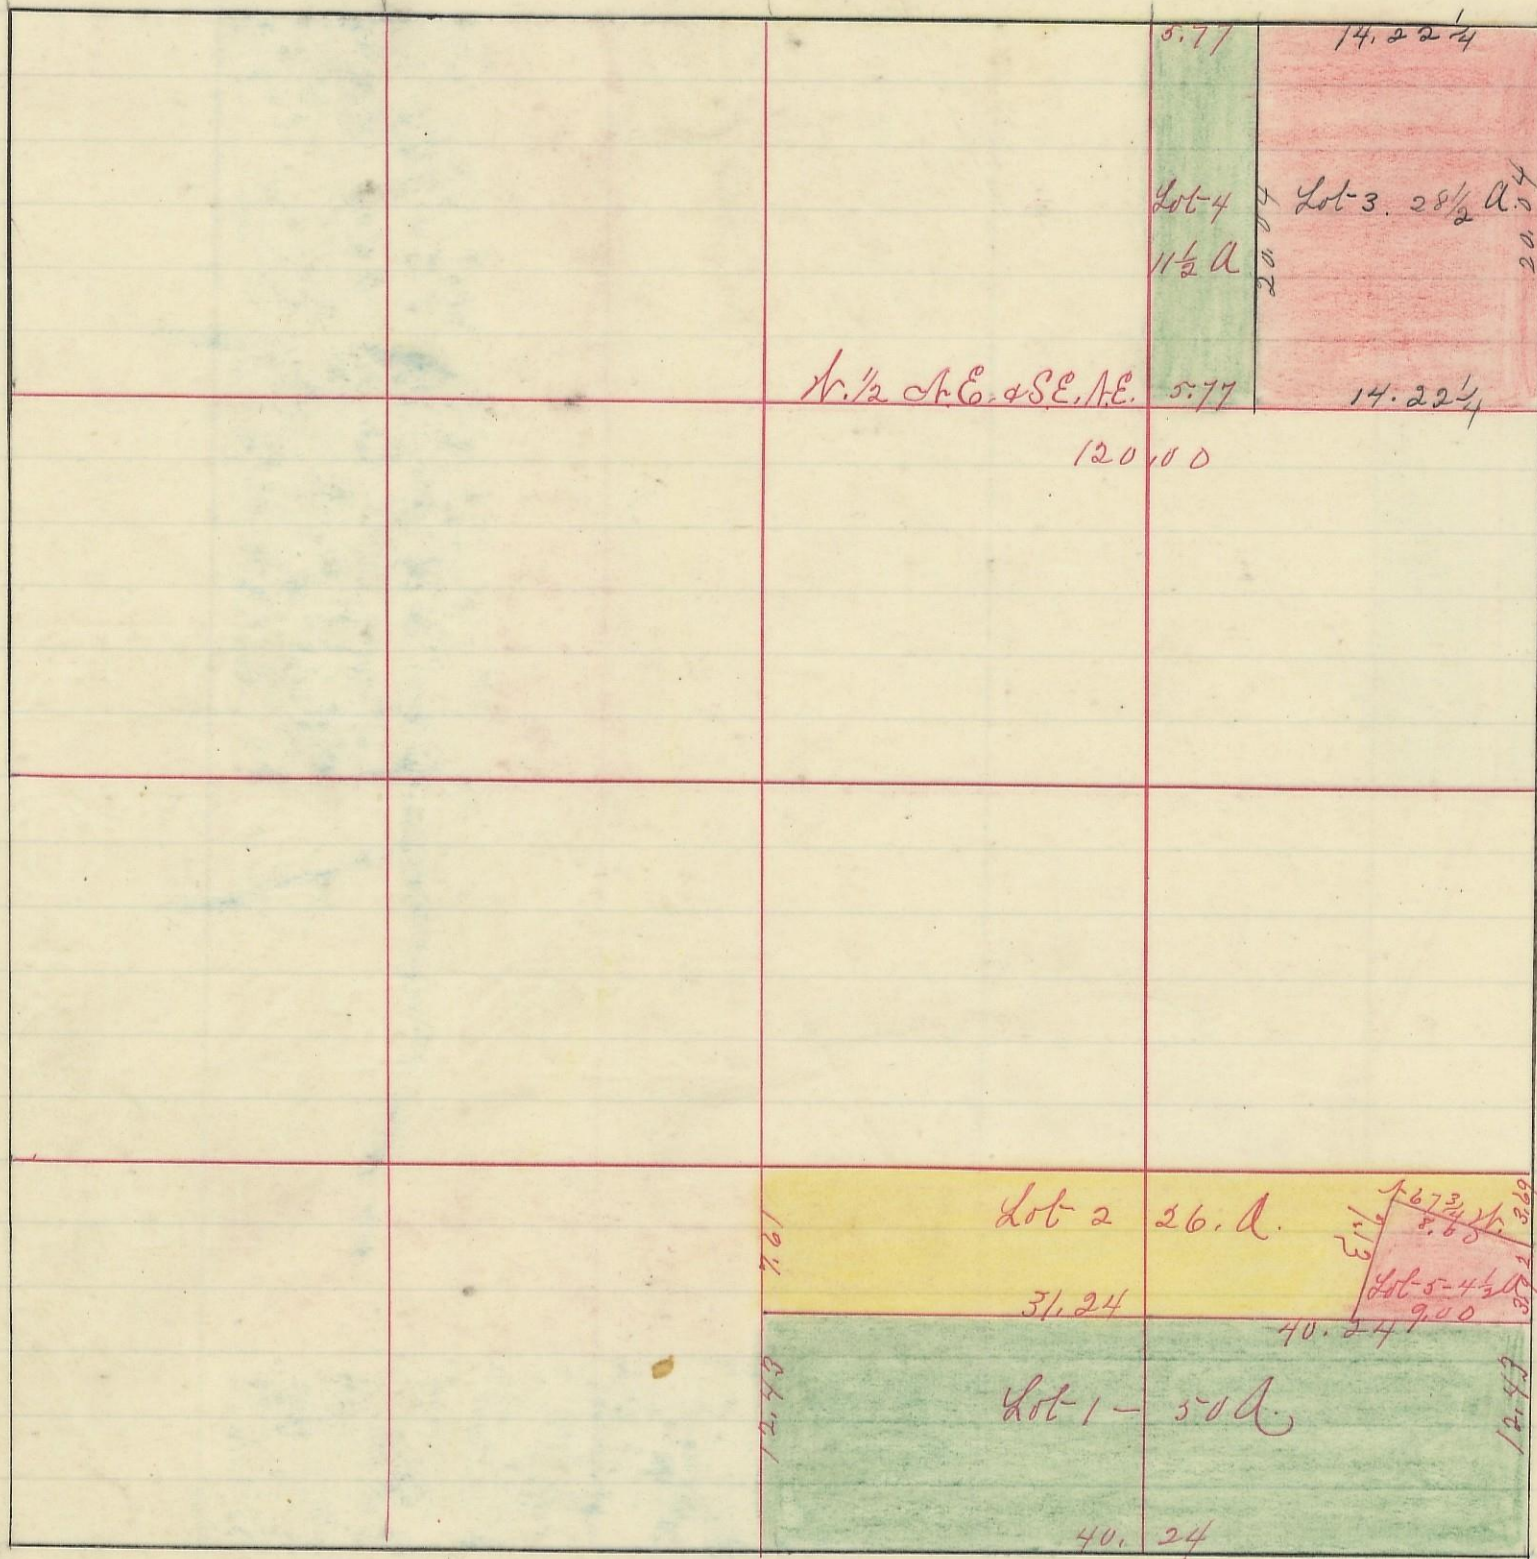 5.77
14.22 1/4
Lot-4
11 1/2 A
20.04
Lot-3. 28 1/2 A.
20.04
N. 1/2 N.E. & S.E. N.E.
5.77
14.22 1/4
120.00
Lot 2 26. A.
8.60
3.69
7.61
31.24
Lot-5-4 1/2 A
9.00
3.92
40.24
12.43
Lot-1- 50 A.
12.43
40.24